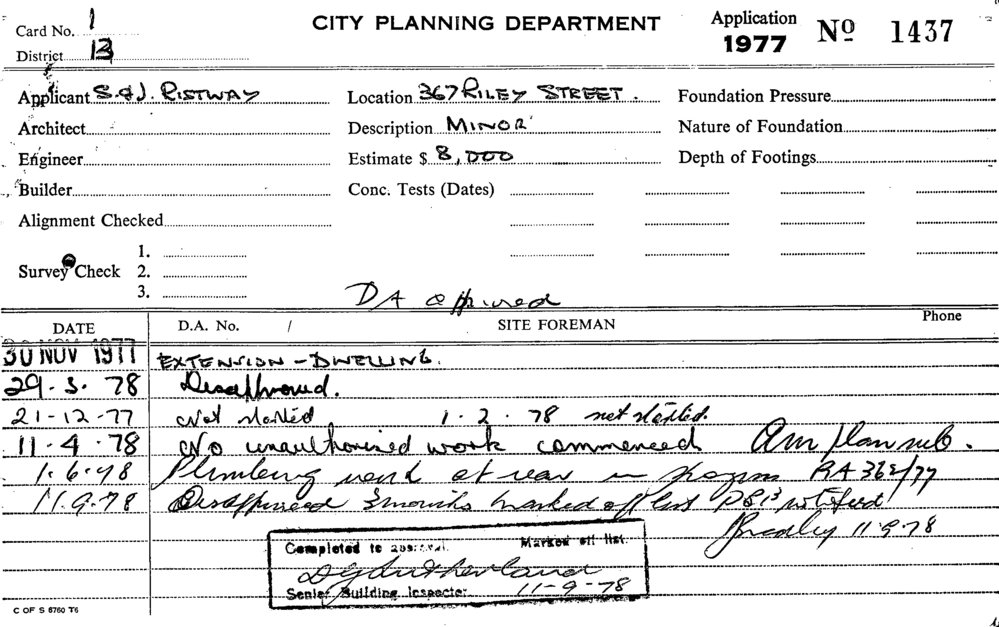 Card No. 1 CITY PLANNING DEPARTMENT Application 1977 Nº 1437
District 13
Applicant S. & J. RISTWAY Location 367 RILEY STREET. Foundation Pressure
Architect Description MINOR Nature of Foundation
Engineer Estimate $ 8,000 Depth of Footings
Builder Conc. Tests (Dates)
Alignment Checked
Survey Check 1.
2.
3.
DA approved
DATE D.A. No. / SITE FOREMAN Phone
30 NOV 1977 EXTENSION - DWELLING.
29. 3. 78 Disapproved.
21-12-77 Not started 1. 2. 78 not started.
11-4.78 No unauthorised work commenced
1.6.78 Plumbing work at rear in progress
11.9.78 Disapproved 3 months marked off list notified
Bradley 11.9.78
Completed to approval. Marked off list.
DG Sutherland
Senior Building Inspector 11-9-78
C OF S 6760 T6